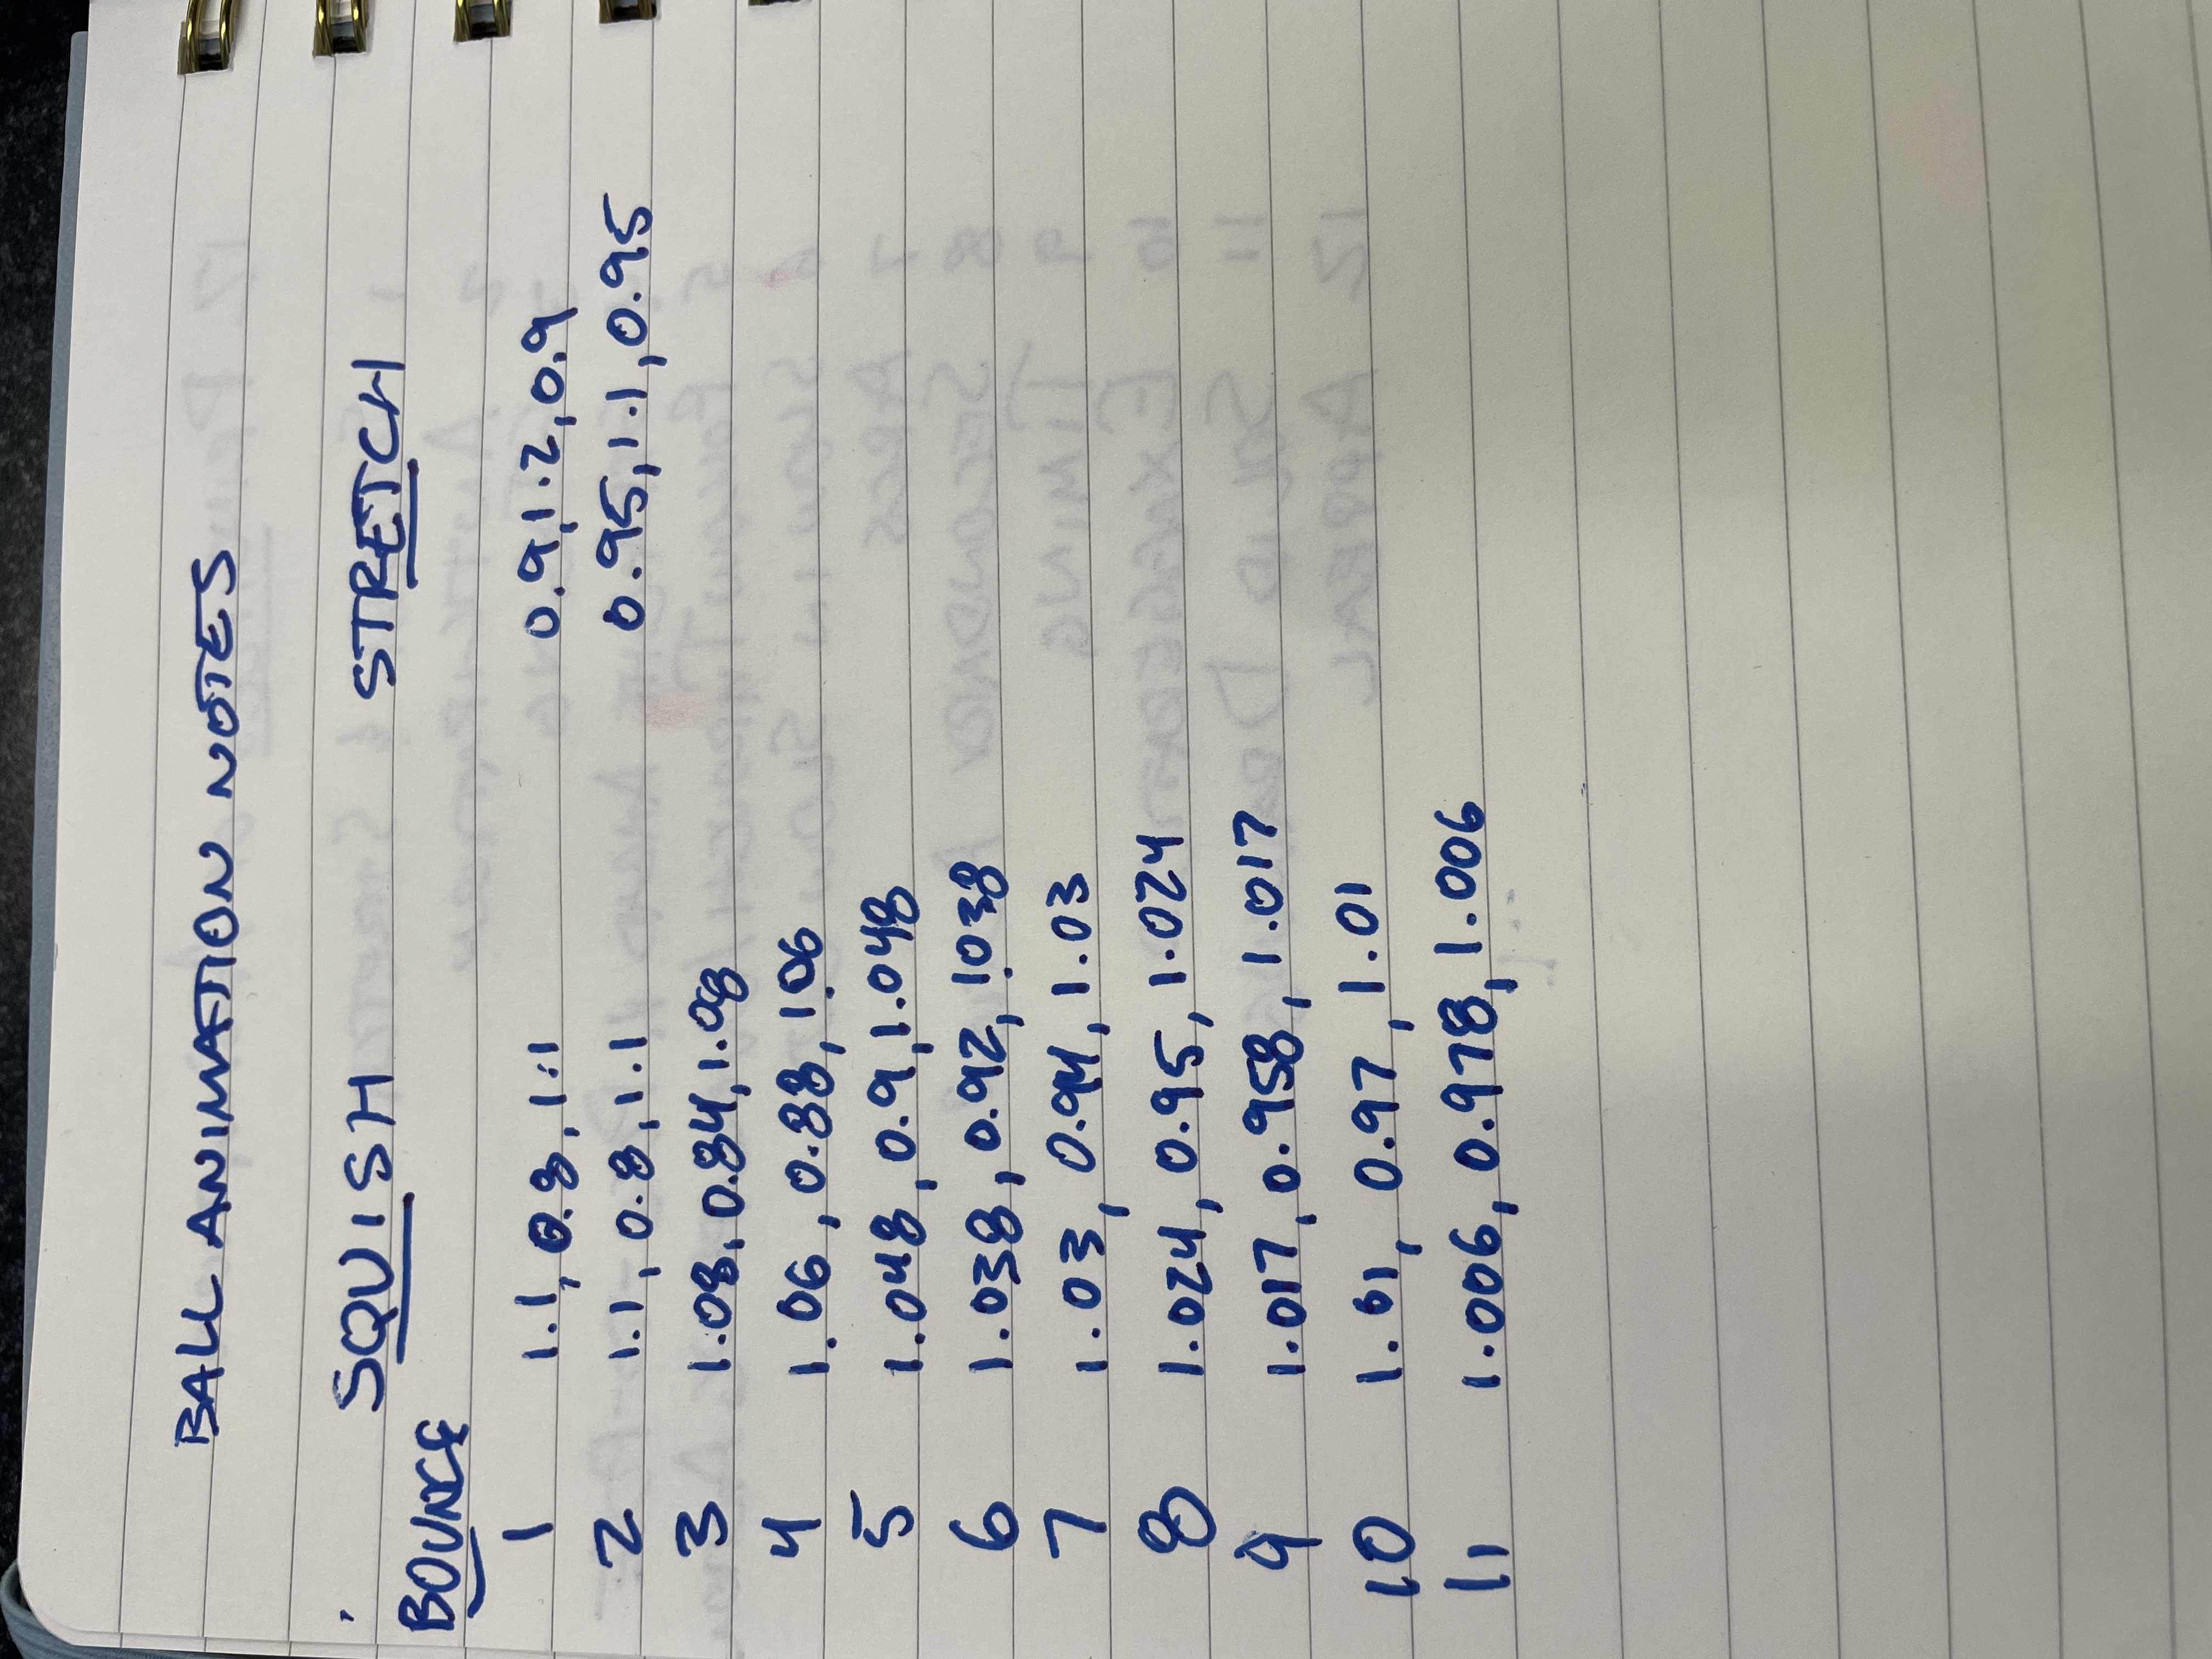 BALL ANIMATION NOTES
SQUISH STRETCH
BOUNCE
1 1.1, 0.8, 1.1 0.9, 1.2, 0.9
2 1.1, 0.8, 1.1 0.95, 1.1, 0.95
3 1.08, 0.84, 1.08
4 1.06, 0.88, 1.06
5 1.048, 0.9, 1.048
6 1.038, 0.92, 1.038
7 1.03, 0.94, 1.03
8 1.024, 0.95, 1.024
9 1.017, 0.958, 1.017
10 1.01, 0.97, 1.01
11 1.006, 0.978, 1.006